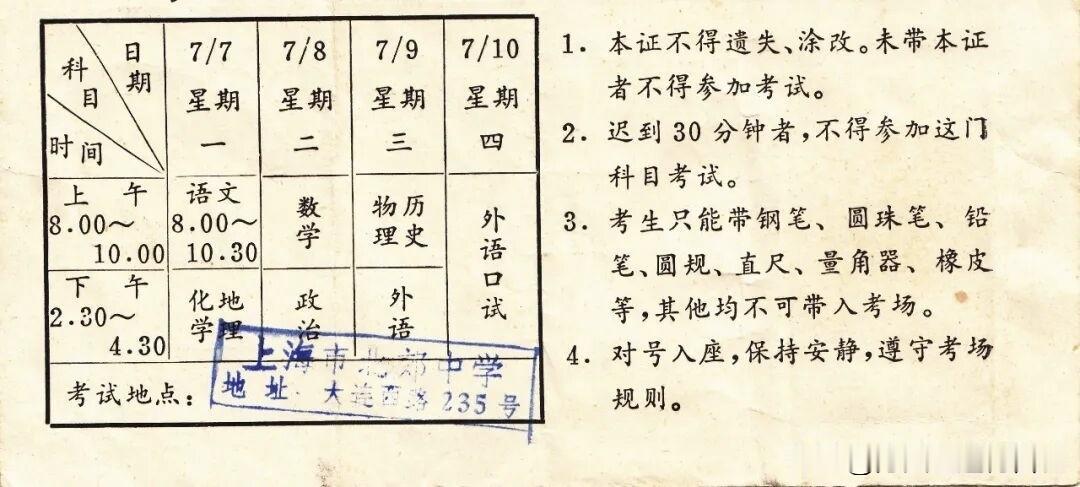 日期 7/7 7/8 7/9 7/10
科目 星期一 星期二 星期三 星期四
时间
上午 8.00～10.00 语文 8.00～10.30 数学 物理 历史 外语口试
下午 2.30～4.30 化学 地理 政治 外语
考试地点：
上海市北郊中学
地址 大连西路235号
1. 本证不得遗失、涂改。未带本证
者不得参加考试。
2. 迟到30分钟者，不得参加这门
科目考试。
3. 考生只能带钢笔、圆珠笔、铅
笔、圆规、直尺、量角器、橡皮
等，其他均不可带入考场。
4. 对号入座，保持安静，遵守考场
规则。